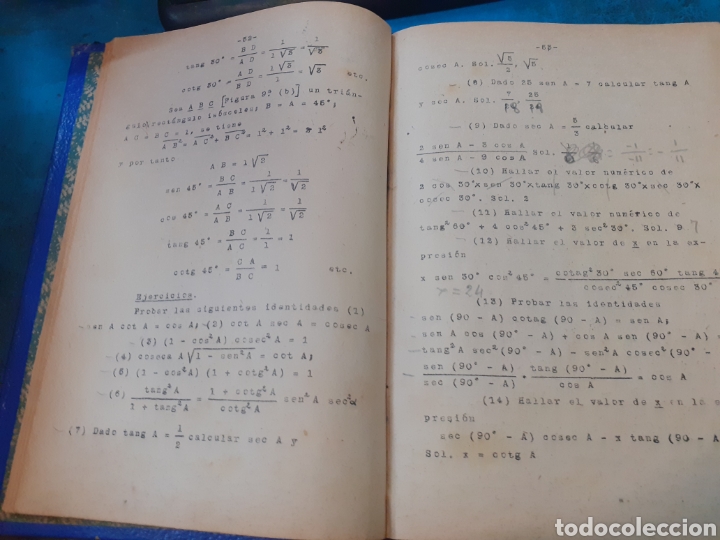 -52-
tang 30° = BD/AD = 1/1√3 = 1/√3
cotg 30° = AD/BD = 1√3/1 = √3 etc.
Sea A B C [Figura 9ª (b)] un trián-
gulo, rectángulo isósceles; B = A = 45°,
A C = B C = 1, se tiene
AB² = AC² + BC² = 1² + 1² = 2 1²
y por tanto
AB = 1√2
sen 45° = BC/AB = 1/1√2 = 1/√2
cos 45° = AC/AB = 1/1√2 = 1/√2
tang 45° = BC/AC = 1/1 = 1
cotg 45° = CA/BC = 1 etc.
Ejercicios.
Probar las siguientes identidades (1)
sen A cot A = cos A; (2) cot A sec A = cosec A
(3) (1 - cos² A) cosec² A = 1
(4) coseca A √1 - sen² A = cot A;
(5) (1 - cos² A) (1 + cotg² A) = 1
(6) tang² A/1 + tang² A = 1 + cotg² A/cotg² A sen² A sec²
(7) Dado tang A = 1/2 calcular sec A y
-53-
cosec A. Sol. √5/2, √5
(8) Dado 25 sen A = 7 calcular tang A
y sec A. Sol. 7/, 25/
(9) Dado sec A = calcular
2 sen A - 3 cos A/4 sen A - 9 cos A Sol. = -1/-11 = - 1/11
(10) Hallar el valor numérico de
3 cos 60°x sen 30°x tang 30°x cotg 30°x sec 30°x
cosec 30°. Sol. 2
(11) Hallar el valor numérico de
tang² 60° + 4 cos² 45° + 3 sec² 30°. Sol. 9 7
(12) Hallar el valor de x en la ex-
presión
x sen 30° cos² 45° = cotang² 30° sec 60° tang 4/cosec² 45° cosec 30
x = 24
(13) Probar las identidades
sen (90 - A) cotag (90 - A) = sen A;
sen A cos (90° - A) + cos A sen (90° -
tang² A sec² (90° - A) - sen² A cosec² (90° -
sen (90° - A)/sec (90° - A) · tang (90° - A)/cos A = cos A
(14) Hallar el valor de x en la e
presión
sec (90° - A) cosec A - x tang (90 - A
Sol. x = cotg A
todocoleccion